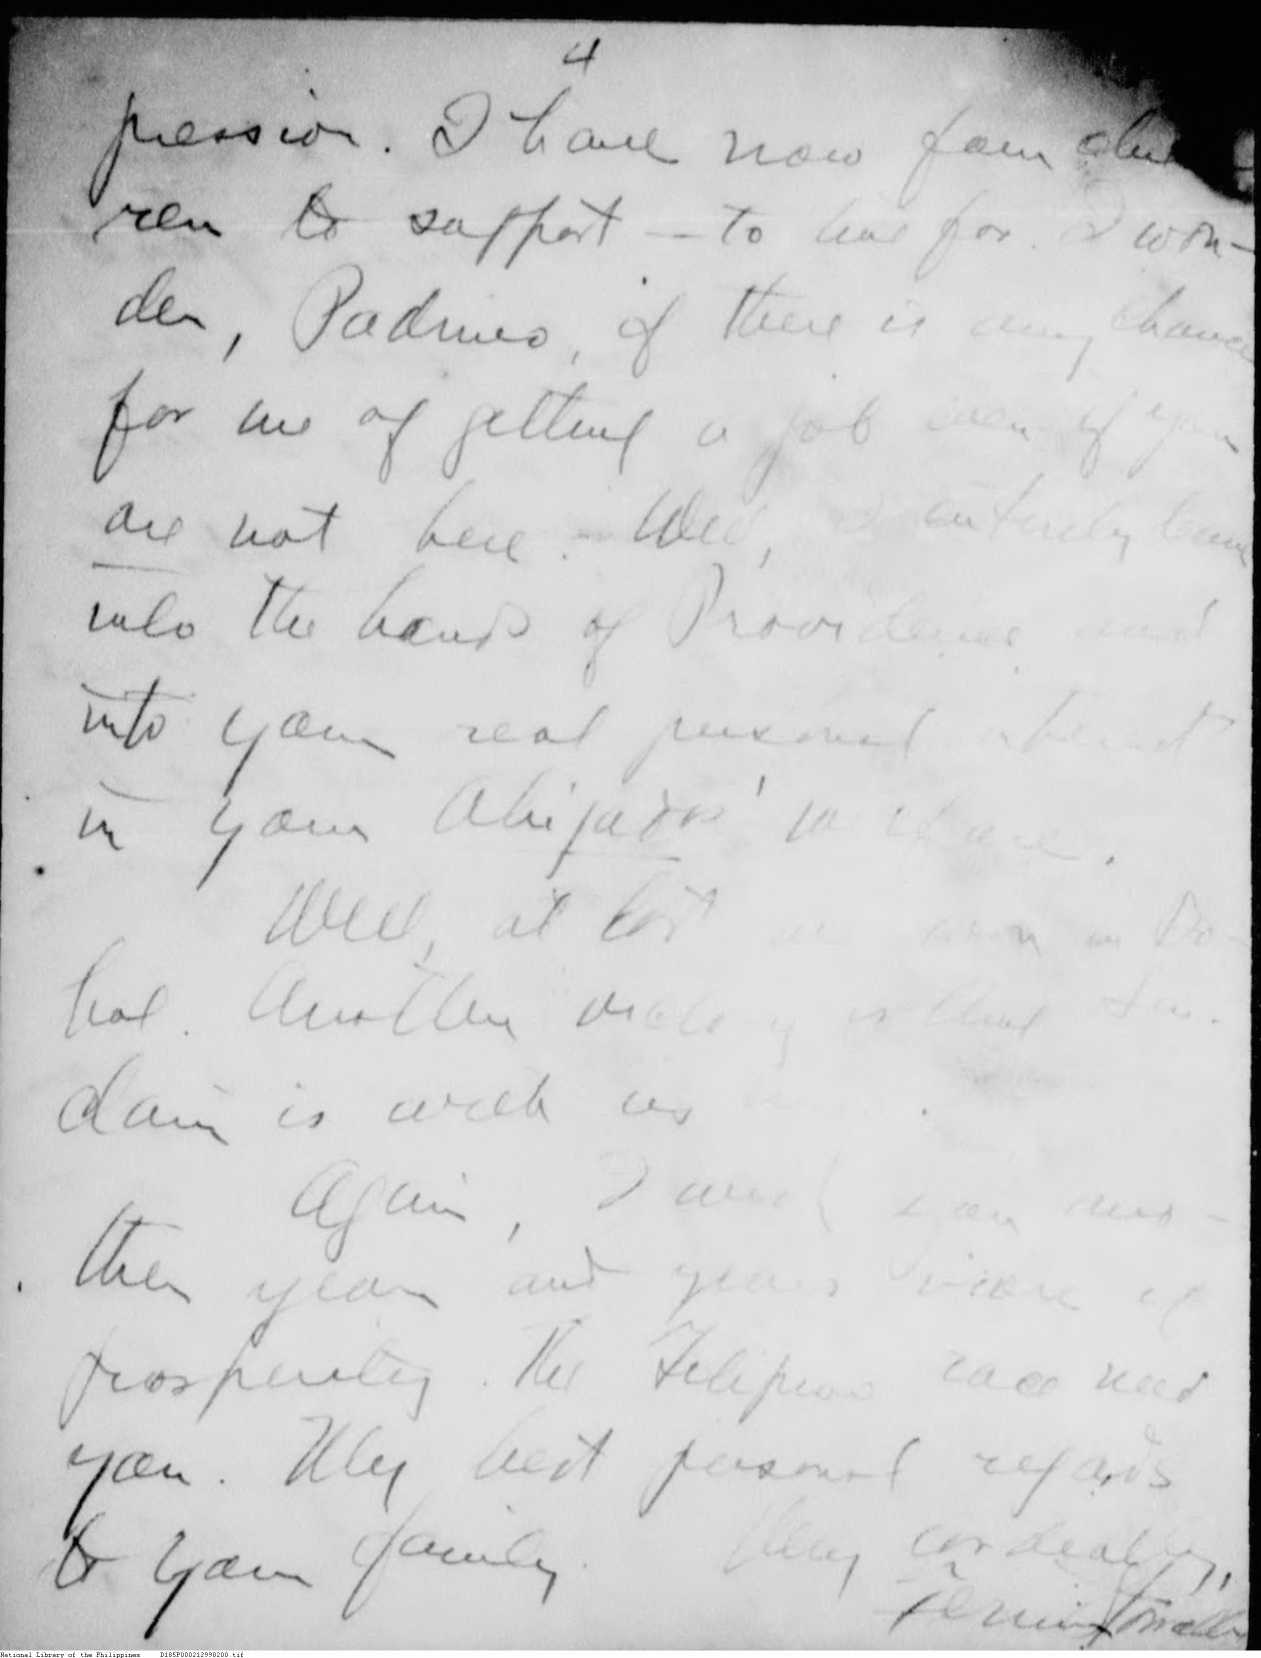 4
pression. I have now four child
ren to support — to live for. I won-
der, Padrino, if there is any chance
for me of getting a job even if you
are not here. Well, I entirely leave
into the hands of Providence and
into your real personal interest
in your Ahijados' welfare.
Well, at last we won in Bo-
hol. Another victory is that
is with us
Again, I wish you ano-
ther year and years more of
prosperity. The Filipino race need
you. My best personal regards
to your family. Very cordially,
Fermin
National Library of the Philippines D185P000212998200.tif